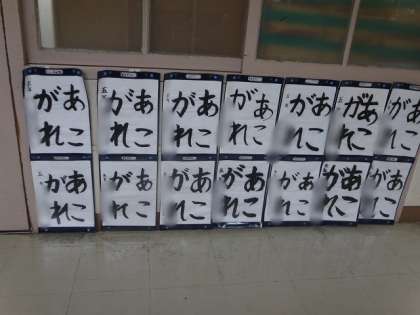 あこ
がれ
あこ
がれ
あこ
がれ
あこ
がれ
あこ
がれ
あこ
がれ
あこ
がれ
あこ
がれ
あこ
がれ
あこ
がれ
あこ
がれ
あこ
がれ
あこ
がれ
あこ
がれ